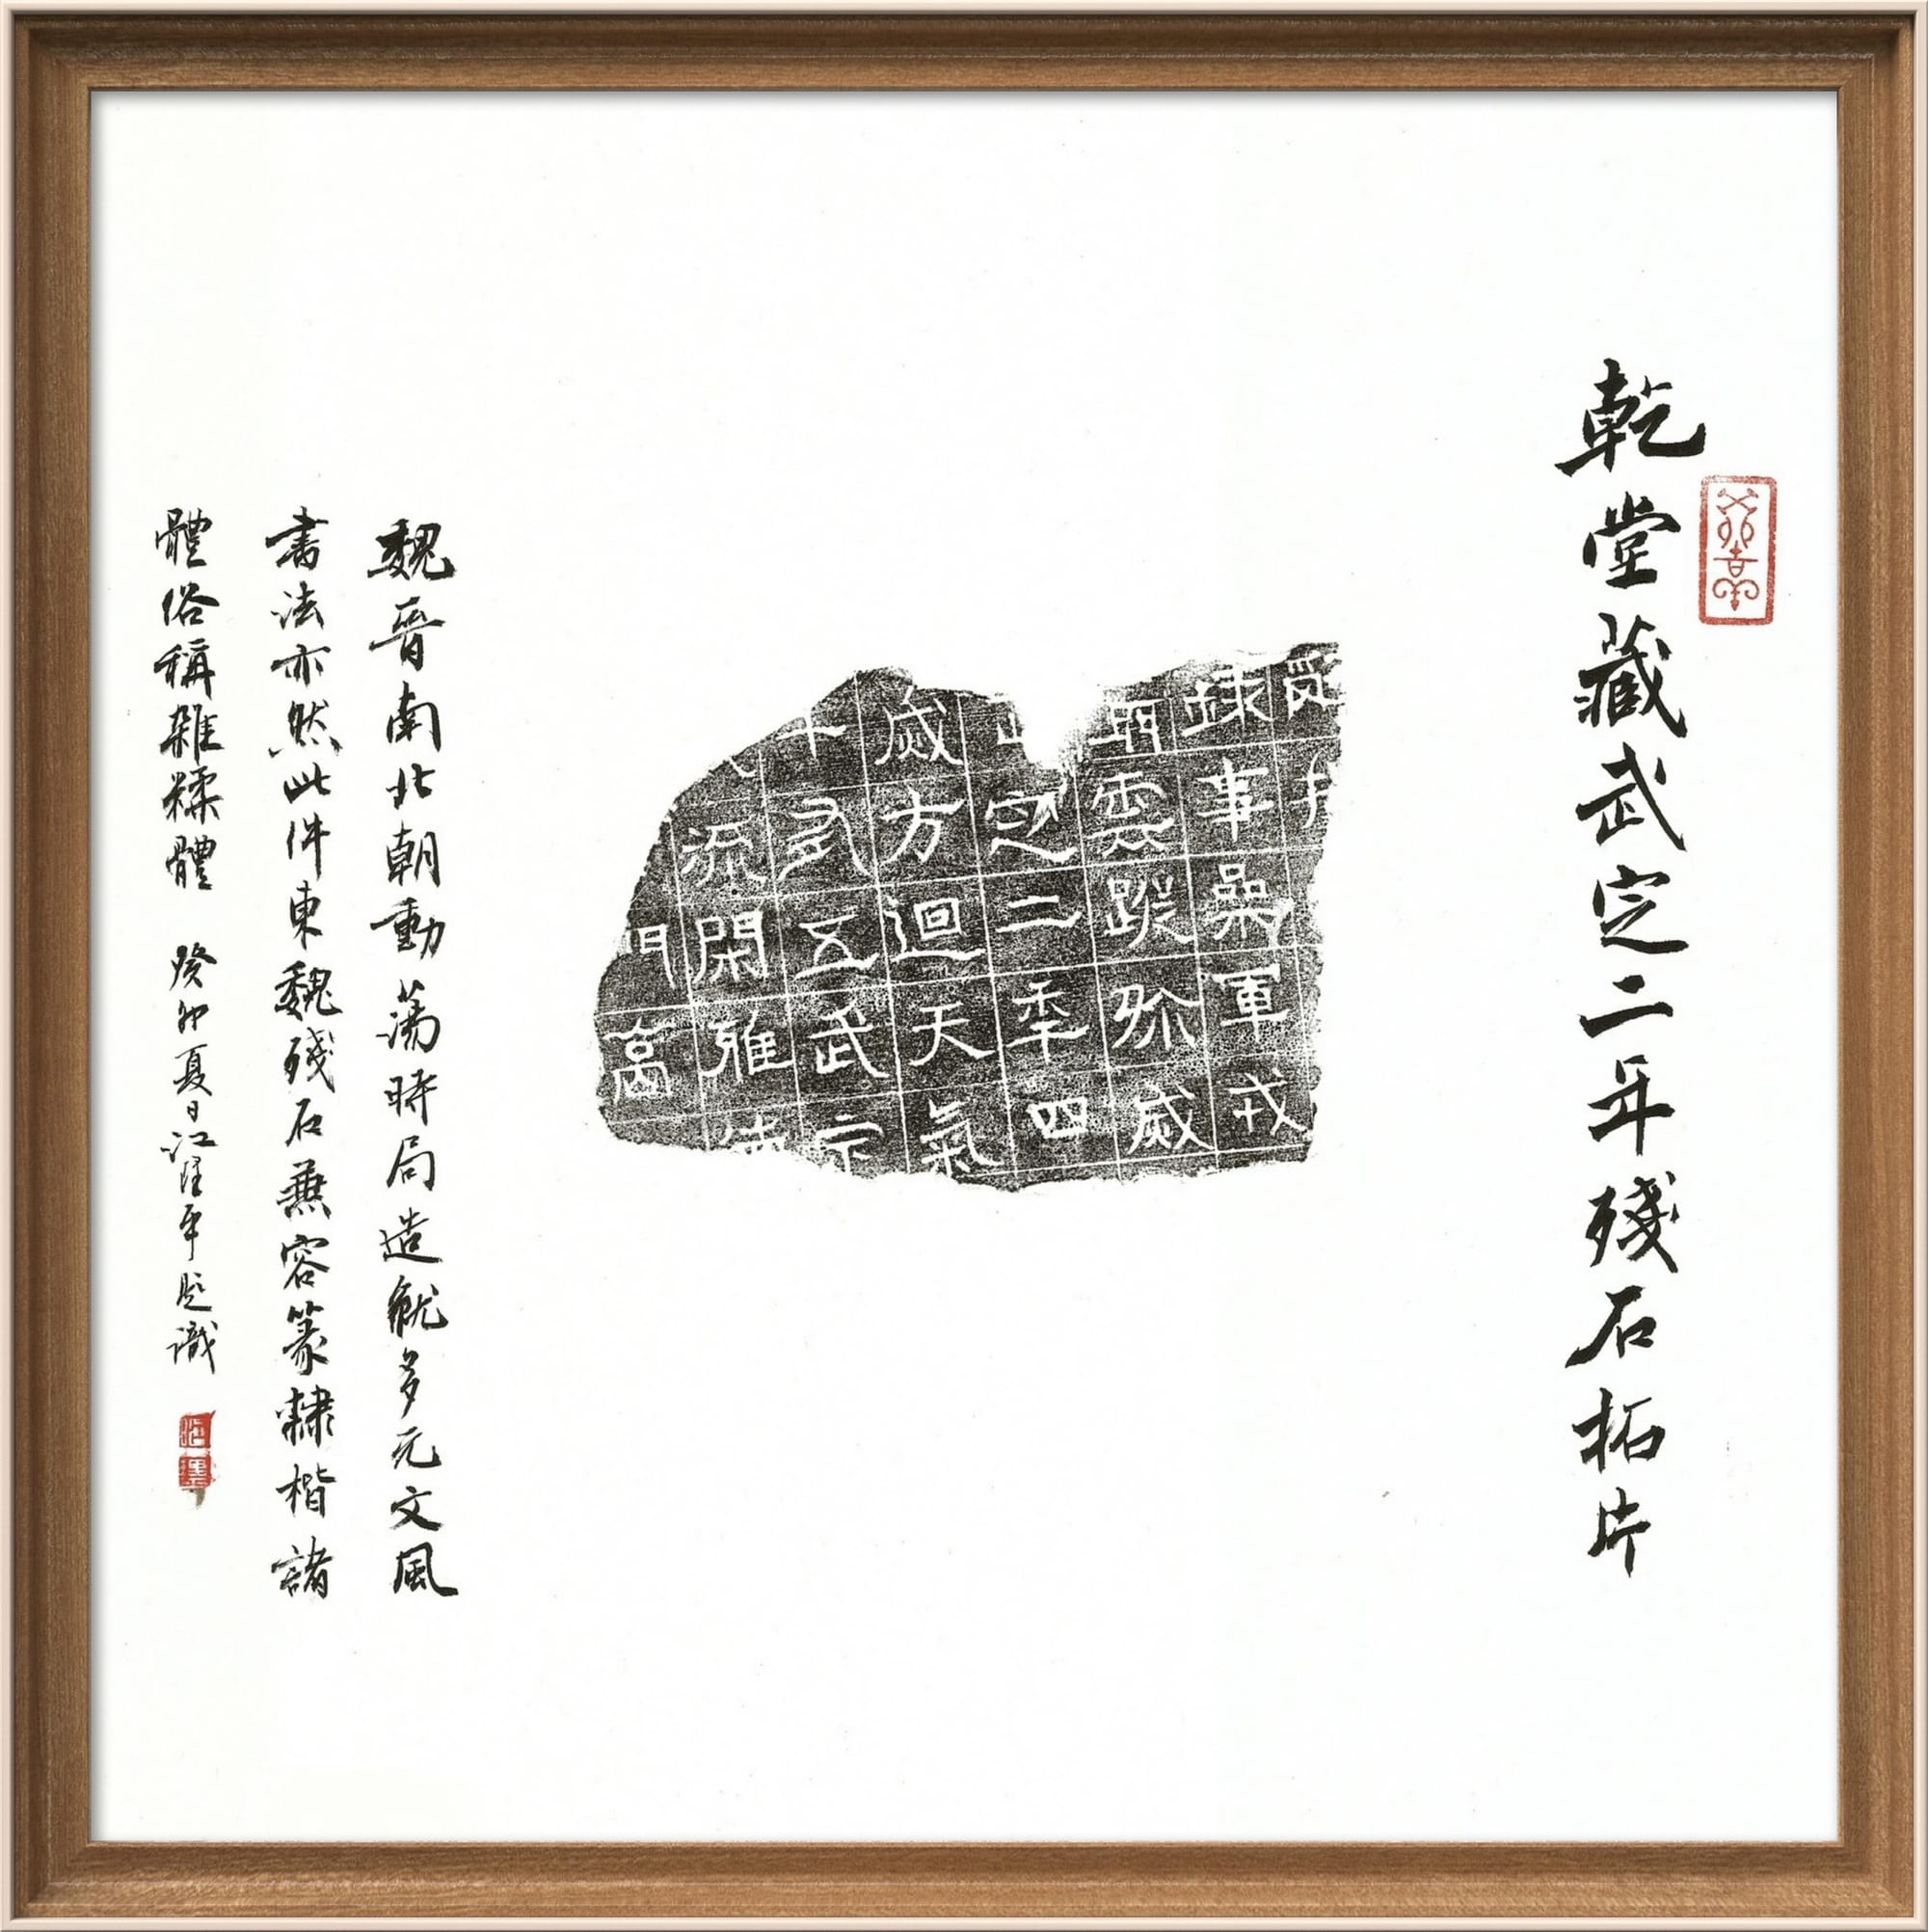 乾堂藏武定二年殘石拓片
錄事參軍戎
雲蹤弥威
定二秊四
歲方迴天氣
十五武定
源閑雅
門
魏晉南北朝動蕩時局造就多元文風
書法亦然此件東魏殘石兼容篆隸楷諸
體俗稱雜糅體 癸卯夏日江平題識